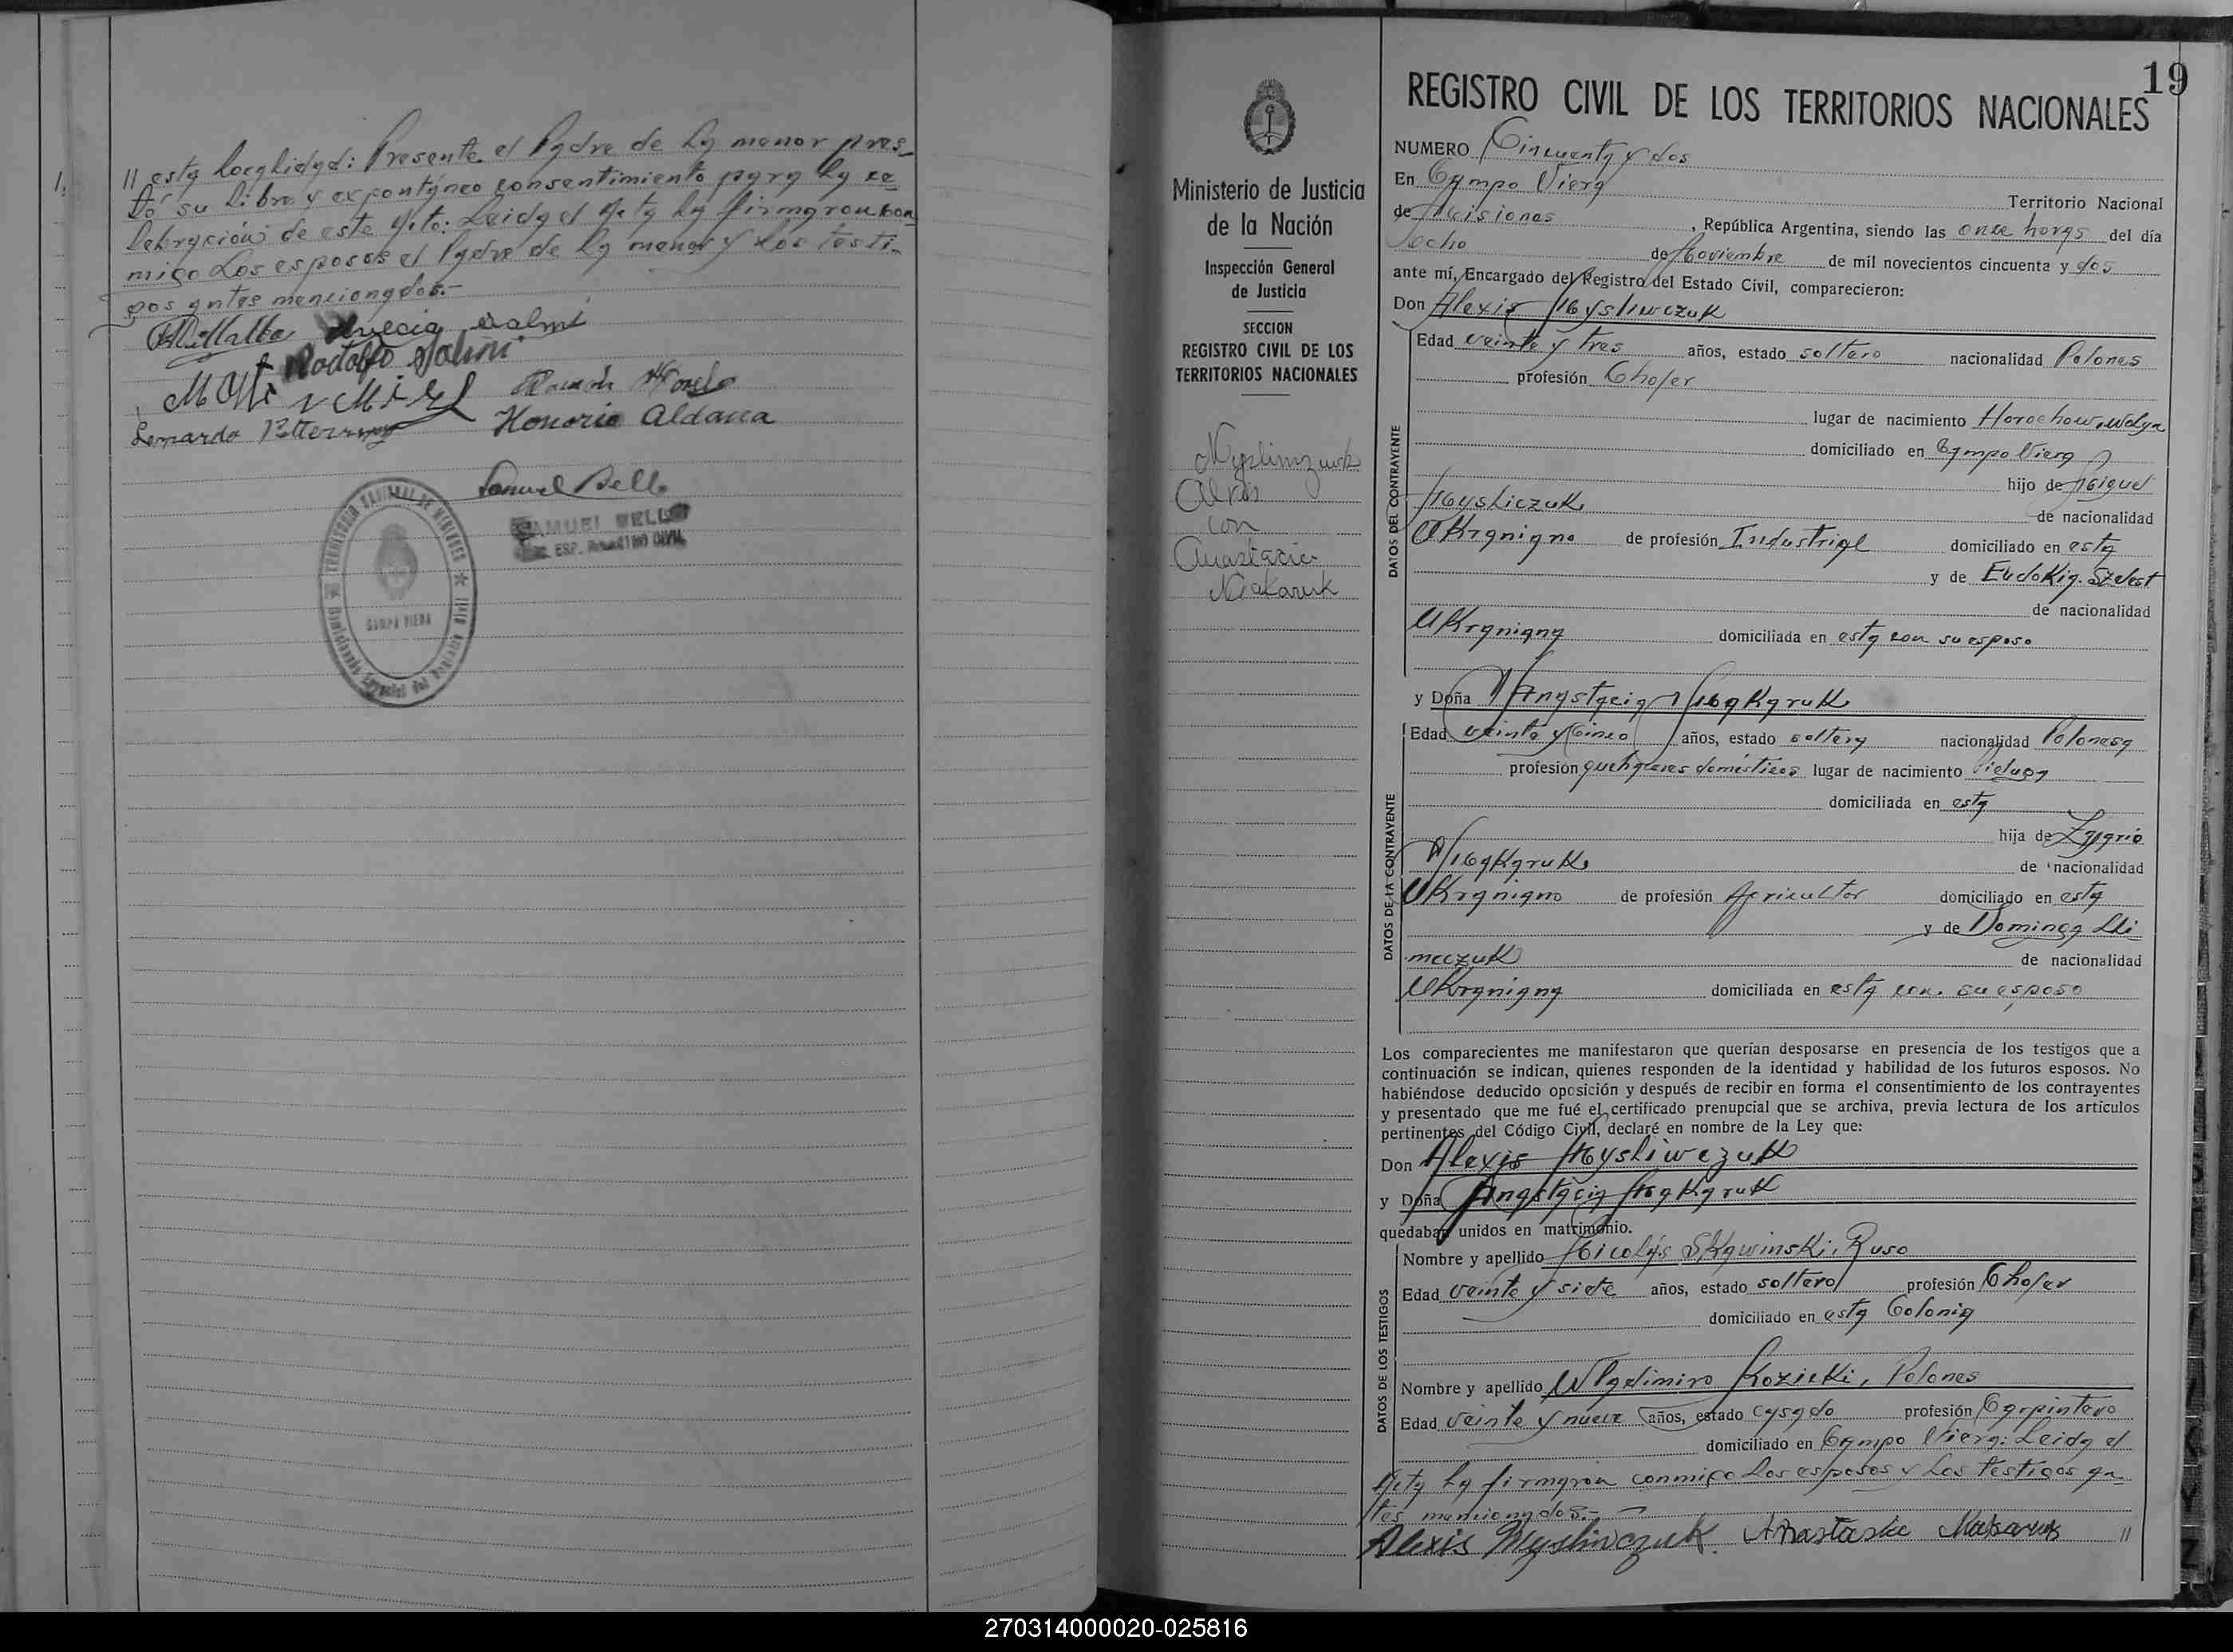 // esta localidad: Presente el Padre de la menor pres-
tó su libre y expontáneo consentimiento para la ce
lebración de este acto: Leida el Acta la firmaron con
migo Los esposos el Padre de la menor y los testi-
gos antes mencionados.-
Rodolfo
Honorio Aldana
Samuel Bello
SAMUEL BELLO
CAMPO VIERA
19
REGISTRO CIVIL DE LOS TERRITORIOS NACIONALES
Ministerio de Justicia
de la Nación
Inspección General
de Justicia
SECCION
REGISTRO CIVIL DE LOS
TERRITORIOS NACIONALES
con
Anastacia
Makaruk
NUMERO Cincuenta y dos
En Campo Viera Territorio Nacional
de Misiones, República Argentina, siendo las once horas del día
ocho de Noviembre de mil novecientos cincuenta y dos
ante mí, Encargado del Registro del Estado Civil, comparecieron:
Don Alexis Mysliwczuk
DATOS DEL CONTRAYENTE
Edad veinte y tres años, estado soltero nacionalidad Polones
profesión Chofer
lugar de nacimiento Horochow, Wolyn
domiciliado en Campo Viera
hijo de Miguel
Mysliczuk de nacionalidad
Ukraniano de profesión Industrial domiciliado en esta
y de Eudokia Szelest
de nacionalidad
Ukraniana domiciliada en esta con su esposo
y Doña Anastacia Makaruk
DATOS DE LA CONTRAYENTE
Edad veinte y Cinco años, estado soltera nacionalidad Polonesa
profesión quehaceres domésticos lugar de nacimiento
domiciliada en esta
hija de
Makaruk de nacionalidad
Ukraniano de profesión Agricultor domiciliado en esta
y de Dominga Kli
mczuk de nacionalidad
Ukraniana domiciliada en esta con su esposo
Los comparecientes me manifestaron que querían desposarse en presencia de los testigos que a
continuación se indican, quienes responden de la identidad y habilidad de los futuros esposos. No
habiéndose deducido oposición y después de recibir en forma el consentimiento de los contrayentes
y presentado que me fué el certificado prenupcial que se archiva, previa lectura de los artículos
pertinentes del Código Civil, declaré en nombre de la Ley que:
Don Alexis Mysliwczuk
y Doña Anastacia Makaruk
quedaban unidos en matrimonio.
DATOS DE LOS TESTIGOS
Nombre y apellido Nicolás Skawinski, Ruso
Edad veinte y siete años, estado soltero profesión Chofer
domiciliado en esta Colonia
Nombre y apellido Wladimiro Kozicki, Polones
Edad veinte y nueve años, estado casado profesión Carpintero
domiciliado en Campo Viera: Leida el
Acta la firmaron conmigo Los esposos y Los testigos an-
tes mencionados.-
Alexis Mysliwczuk. Anastasia Makaruk //
270314000020-025816